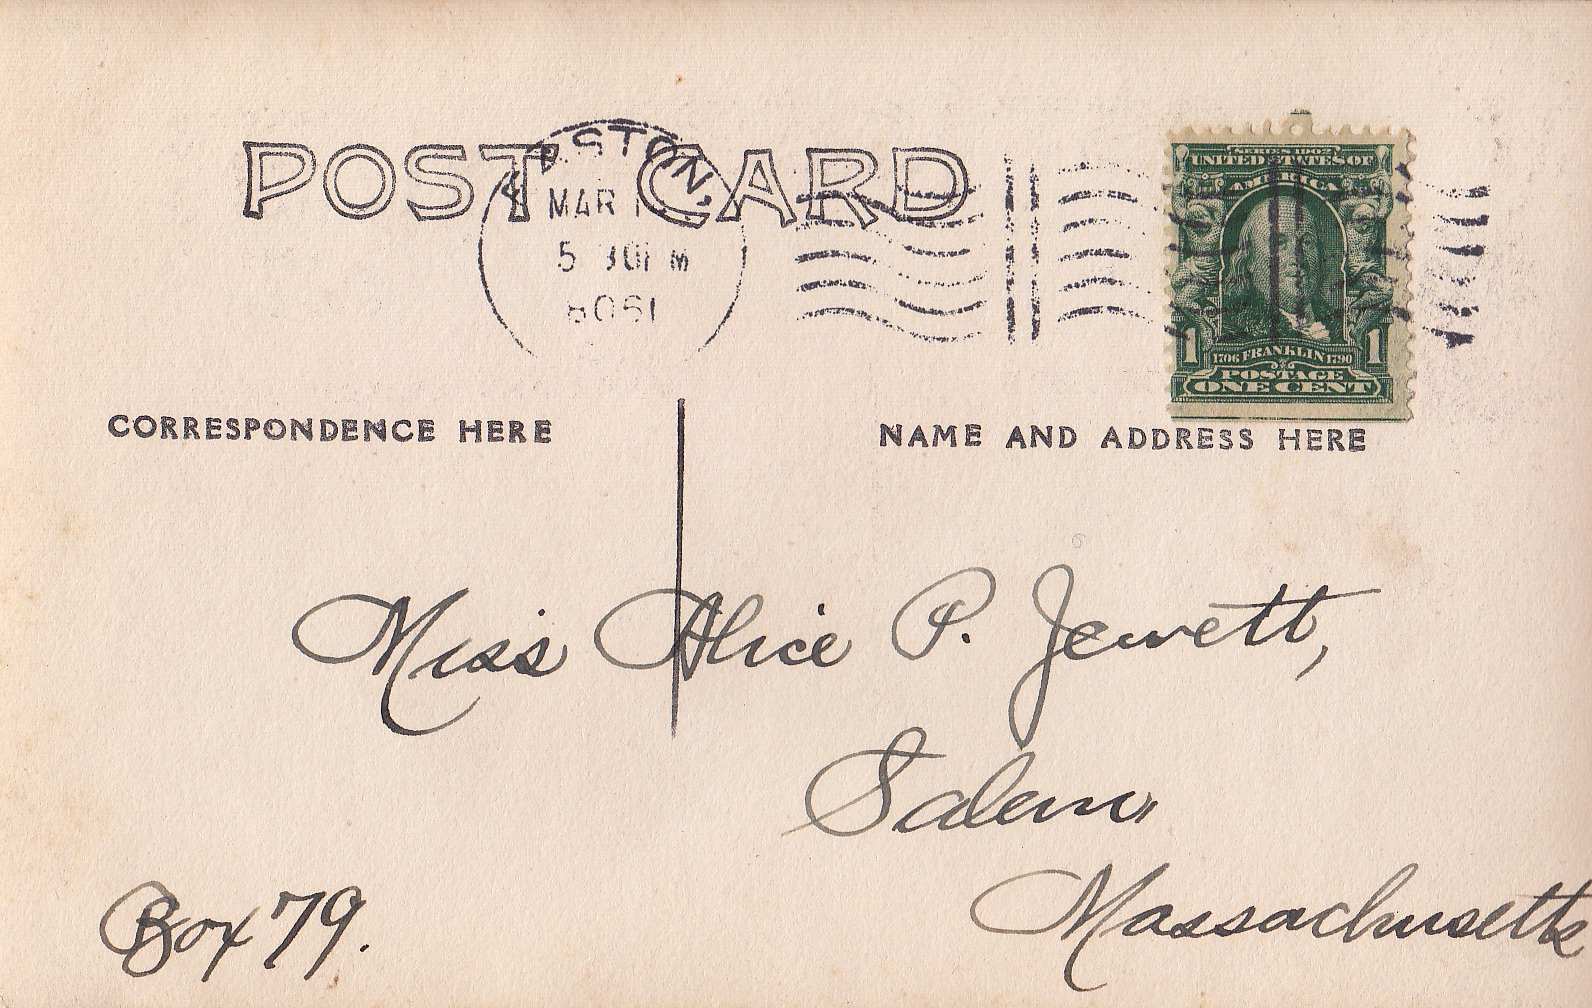 POST CARD
MAR
5 30 PM
SERIES 1902
UNITED STATES OF
AMERICA
1 1
1706 FRANKLIN 1790
POSTAGE
ONE CENT
CORRESPONDENCE HERE
NAME AND ADDRESS HERE
Miss Alice P. Jewett,
Salem,
Massachusetts
Box 79.